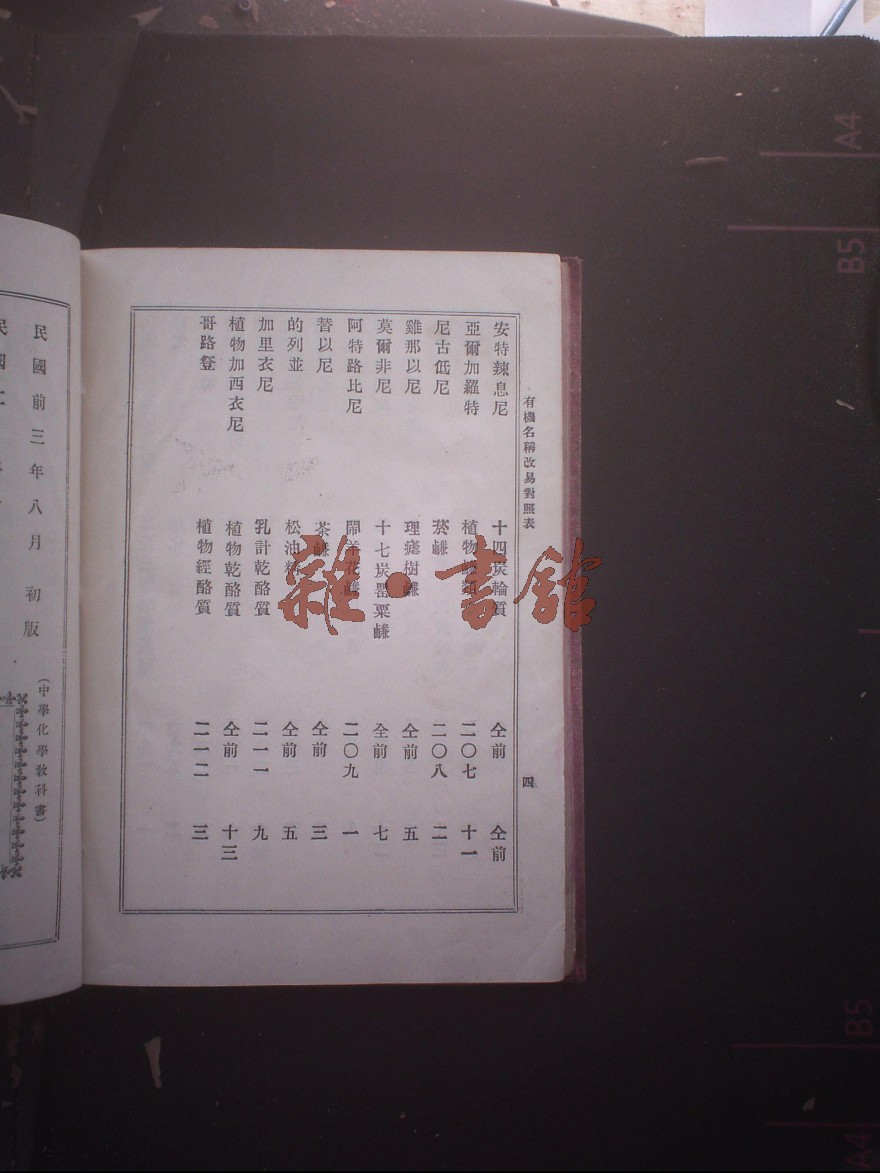 有機名稱改易對照表
四
安特辣息尼 十四炭輪質 仝前 仝前
亞爾加羅特 植物鹻類 二〇七 十一
尼古低尼 菸鹻 二〇八 二
雞那以尼 理瘧樹鹻 仝前 五
莫爾非尼 十七炭罌粟鹻 仝前 七
阿特路比尼 鬧羊花鹻 二〇九 一
替以尼 茶鹻 仝前 三
的列並 松油精 仝前 五
加里衣尼 乳計乾酪質 二一一 九
植物加西衣尼 植物乾酪質 仝前 十三
哥路登 植物經酪質 二一二 三
(中學化學敎科書)
民國前三年八月 初版
民國
雜·書館
A4
B5
B5
A4